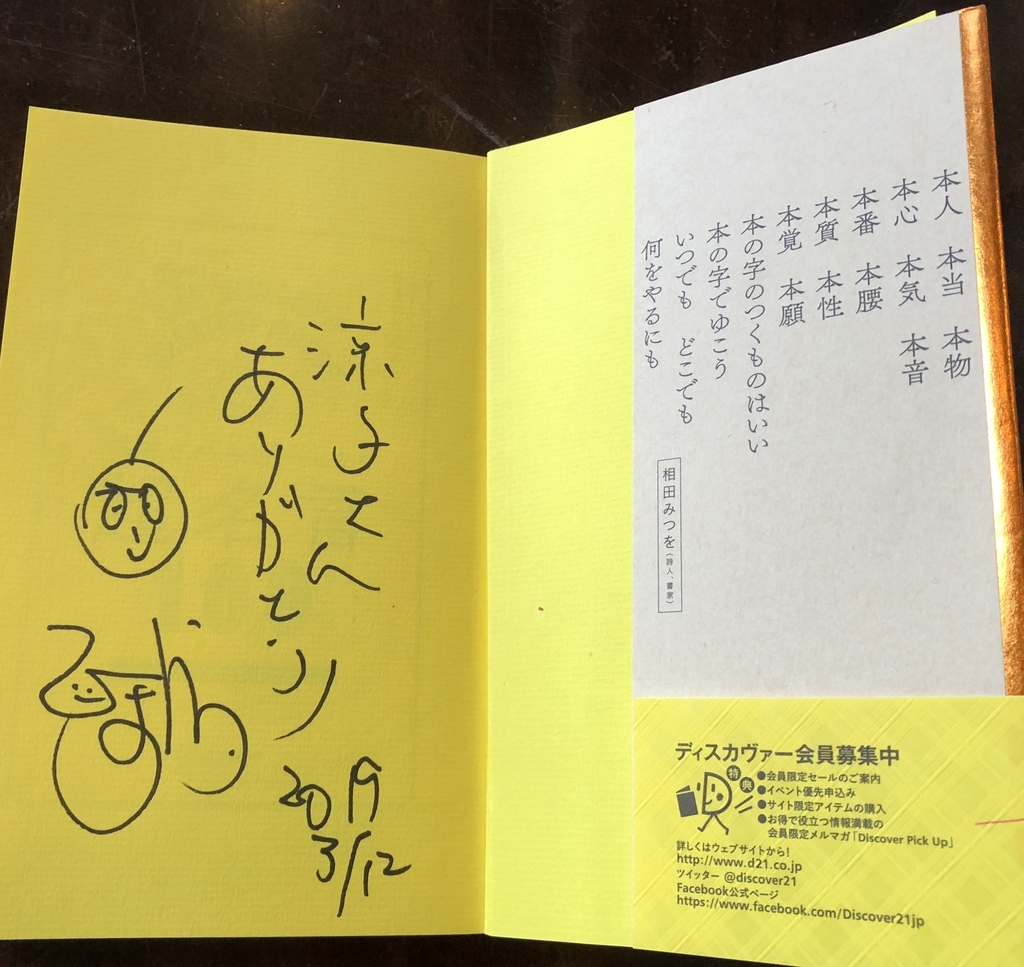 涼子さん
ありがとう
2019
3/12
本人　本当　本物
本心　本気　本音
本番　本腰
本質　本性
本覚　本願
本の字のつくものはいい
本の字でゆこう
いつでも　どこでも
何をやるにも
相田みつを（詩人、書家）
ディスカヴァー会員募集中
特典
●会員限定セールのご案内
●イベント優先申込み
●サイト限定アイテムの購入
●お得で役立つ情報満載の
会員限定メルマガ「Discover Pick Up」
詳しくはウェブサイトから！
http://www.d21.co.jp
ツイッター @discover21
Facebook公式ページ
https://www.facebook.com/Discover21jp